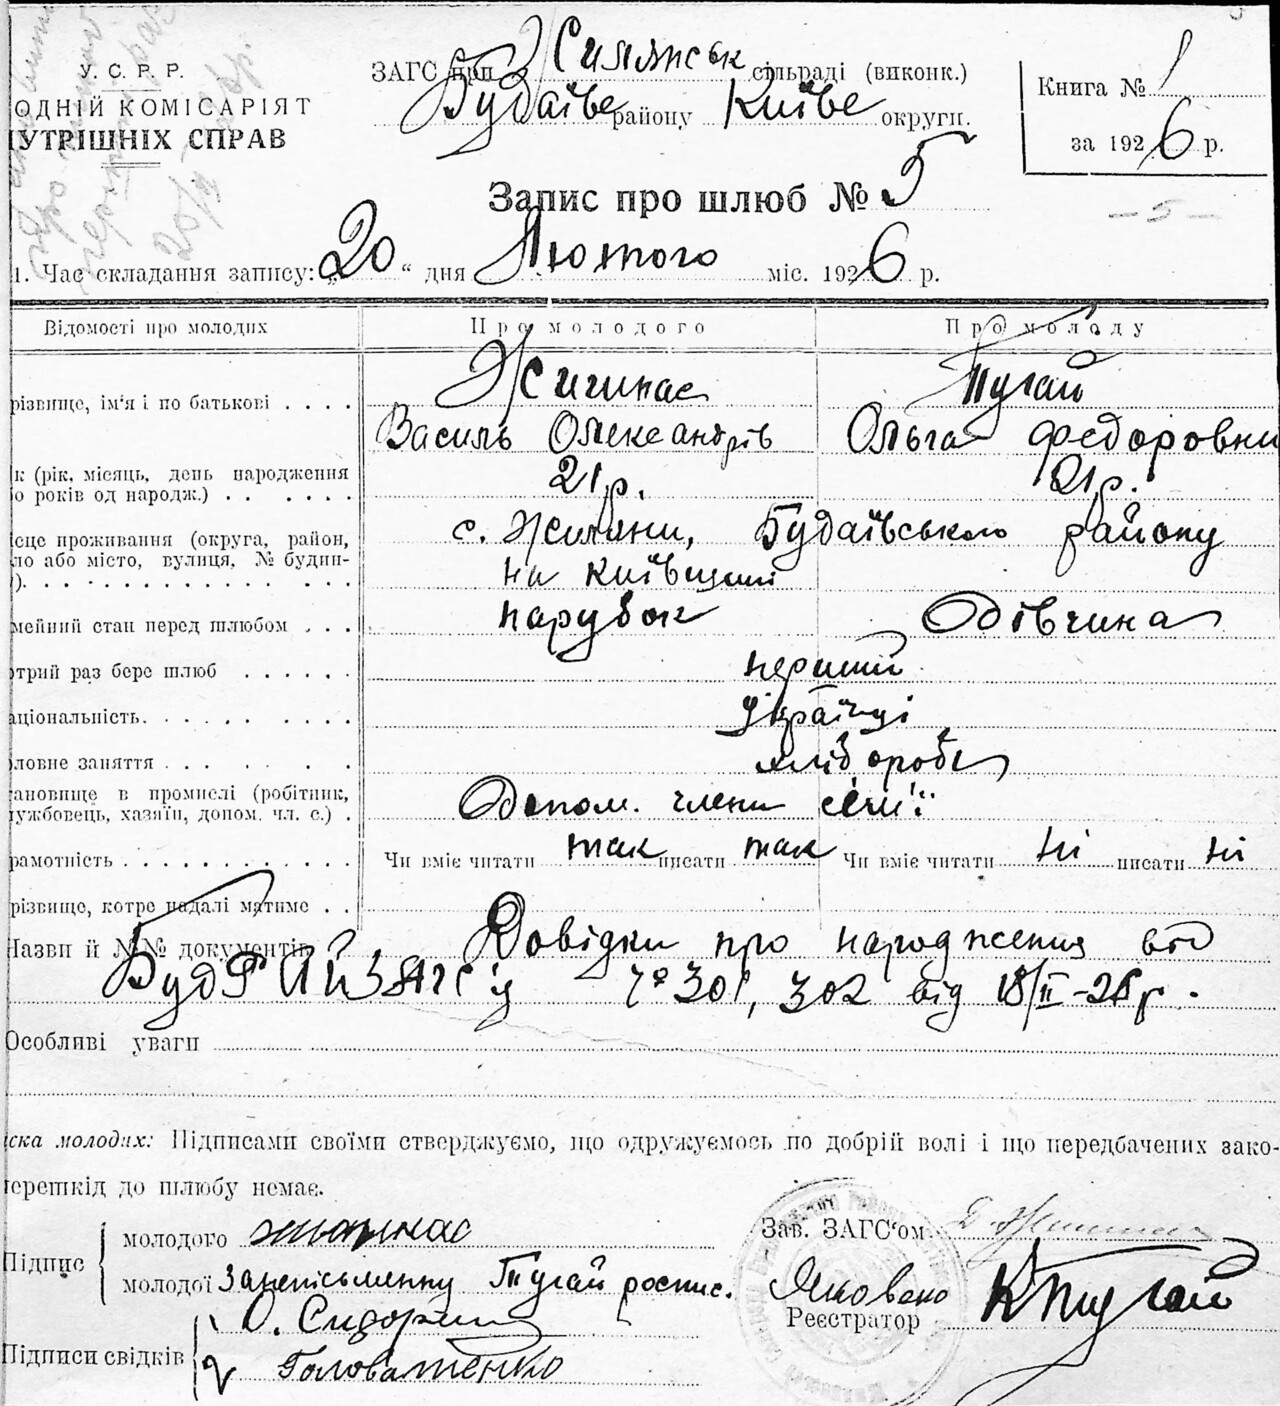 У. С. Р. Р.
ОДНІЙ КОМІСАРІЯТ
НУТРІШНІХ СПРАВ
ЗАГС при Жилянськ сільраді (виконк.)
Будаїве району Київе округи.
Книга № 1
за 1926 р.
Запис про шлюб № 5
— 5 —
1. Час складання запису: „20“ дня Лютого міс. 1926 р.
Відомості про молодих Про молодого Про молоду
різвище, ім'я і по батькові . . . . Жигинас Тугай
Василь Олександрів Ольга Федоровна
к (рік, місяць, день народження 21 р. 21 р.
о років од народж.) . . . . . .
ісце проживання (округа, район, с. Жиляни, Будаївського району
ло або місто, вулиця, № будин-
). . . . . . . . . . . . . . на Київщині
мейний стан перед шлюбом . . . парубок Дівчина
отрий раз бере шлюб . . . . . . перший
аціональність. . . . . . . . . . Українці
ловне заняття . . . . . . . . хлібороби
ановище в промислі (робітник, Допом. члени сем'ї
ужбовець, хазяїн, допом. чл. с.) .
рамотність . . . . . . . . . . . Чи вміє читати так писати так Чи вміє читати ні писати ні
різвище, котре надалі матиме . .
Назви й №№ документів Довідки про народження від
БудРайЗАГС'у № 301, 302 від 18/II-26 р.
Особливі уваги
іска молодих: Підписами своїми стверджуємо, що одружуємось по добрій волі і що передбачених зако-
ерешкід до шлюбу немає.
Підпис
молодого
молодої За неписьменну Тугай роспис.
Зав. ЗАГС'ом
Реєстратор Тугай
Підписи свідків
1 О.
2 Головатенко